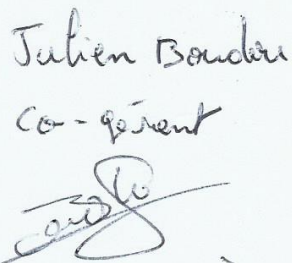 Julien Boudou
Co-gérant